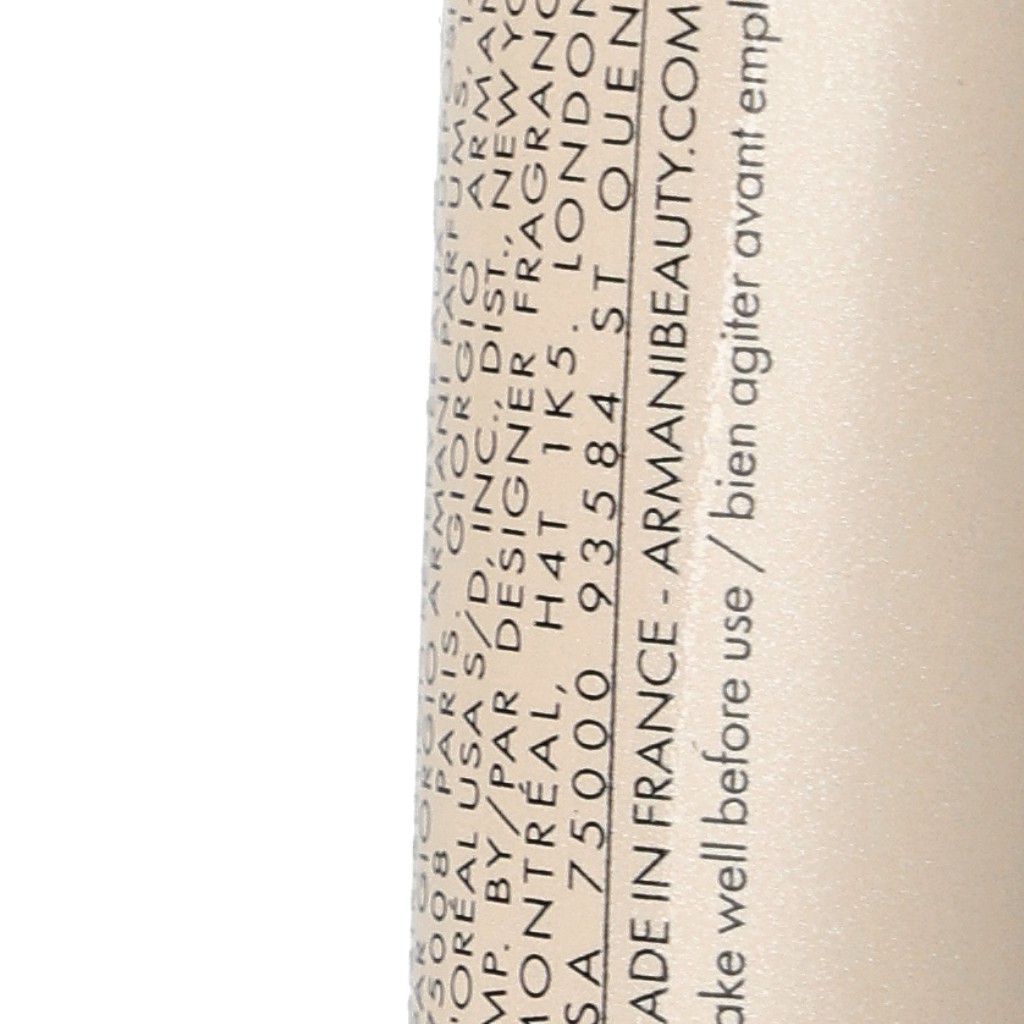 GIORGIO ARMANI PARFUMS,
75008 PARIS. GIORGIO ARMAN
L'ORÉAL USA S/D, INC., DIST., NEW YO
MP. BY/PAR DESIGNER FRAGRANC
MONTRÉAL, H4T 1K5. LONDON
SA 75000 93584 ST OUEN
ADE IN FRANCE - ARMANIBEAUTY.COM
ake well before use / bien agiter avant empl